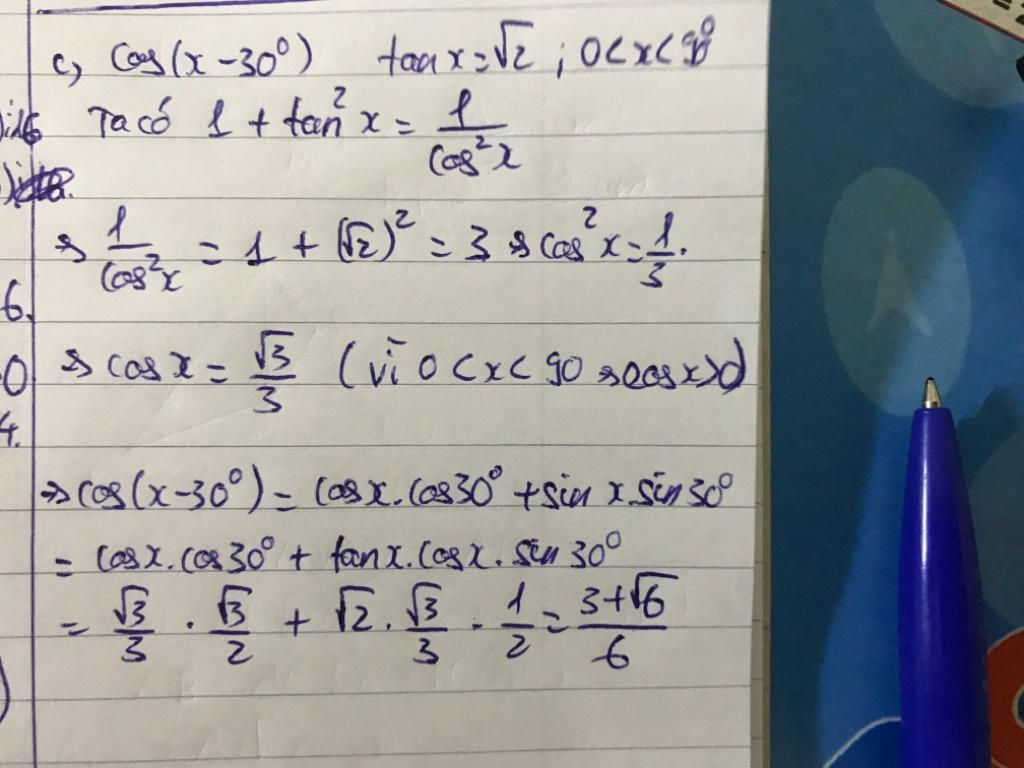 c, cos(x-30⁰) tan x = √2 ; 0 < x < 90⁰
Ta có 1 + tan² x = 1/cos² x
⇒ 1/cos² x = 1 + (√2)² = 3 ⇒ cos² x = 1/3.
6.
⇒ cos x = √3/3 (vì 0 < x < 90 ⇒ cos x > 0)
0
4.
⇒ cos(x-30⁰) = cos x . cos 30⁰ + sin x . sin 30⁰
= cos x . cos 30⁰ + tan x . cos x . sin 30⁰
= √3/3 . √3/2 + √2 . √3/3 . 1/2 = 3+√6/6